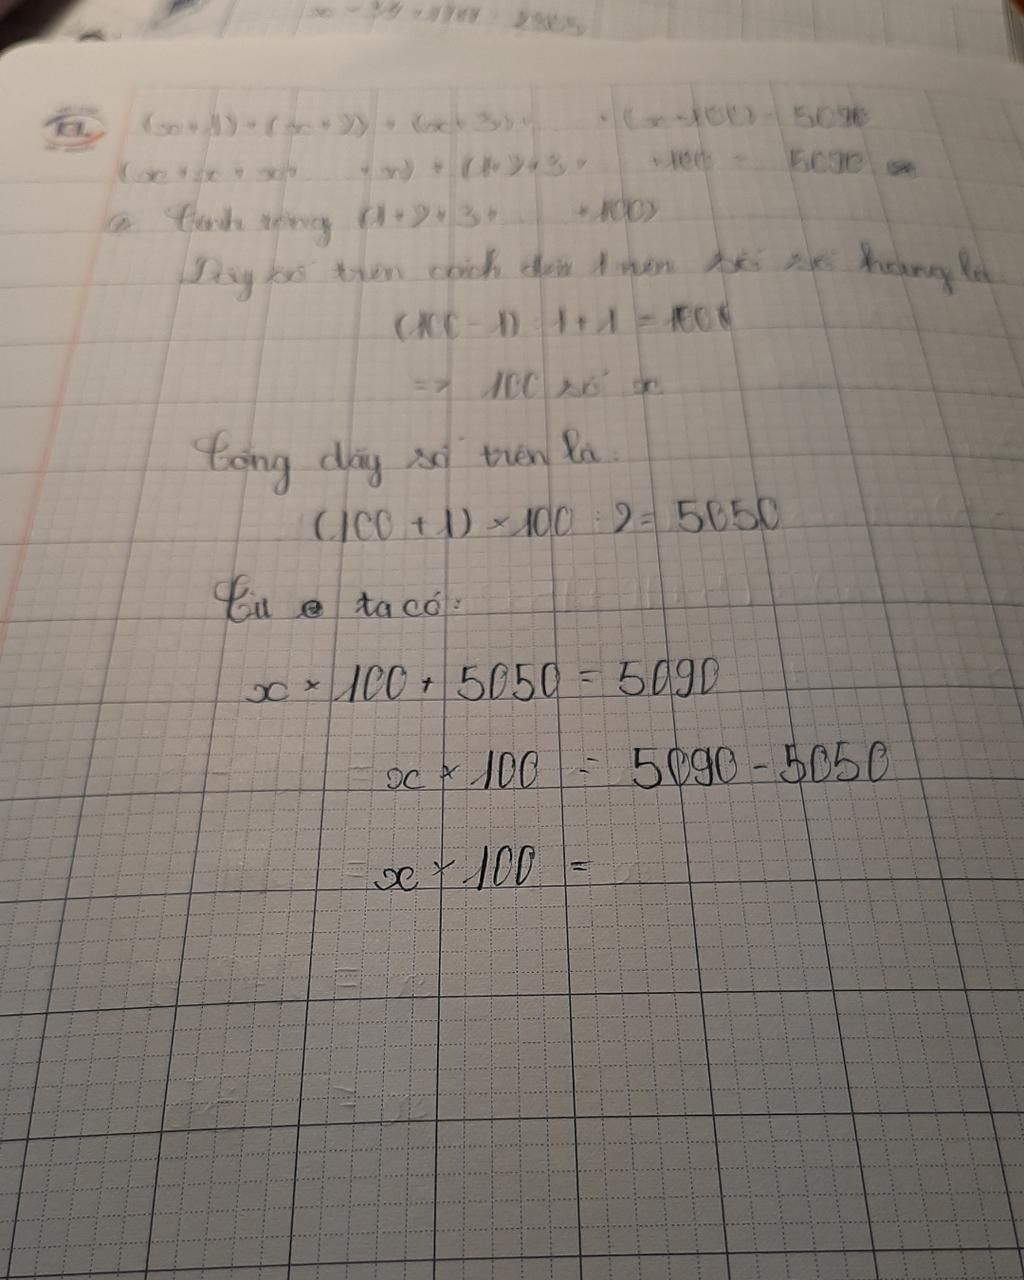 (x+1)+(x+2)+(x+3)+ +(x+100) = 5090
(x+x+x+ +x)+(1+2+3+ +100 = 5090
Tính tổng (1+2+3+ +100)
Dãy số trên cách đều 1 nên số số hạng là
(100-1):1+1=100
=> 100 số x
Tổng dãy số trên là.
(100+1)×100:2=5050
Từ ta có:
x×100+5050=5090
x×100=5090-5050
x×100=